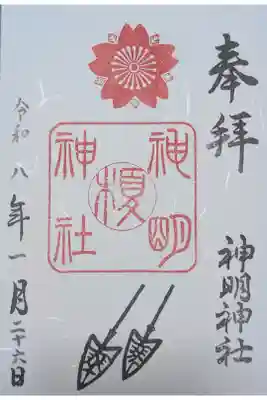 奉拝
神明
榎
神社
神明神社
令和八年一月二十六日